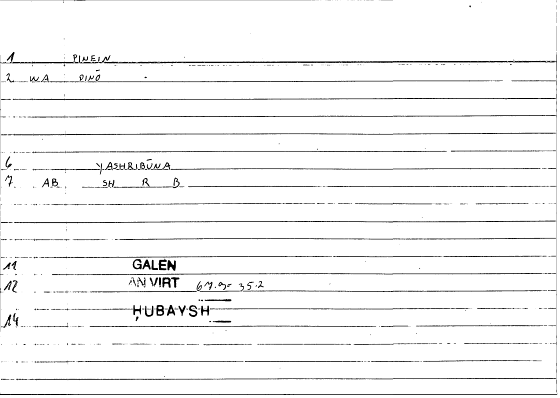 1 PINEIN
2 WA PINŌ -
6 YASHRIBŪNA
7 AB SH R B
11 GALEN
12 AN VIRT 35.2
14 ḤUBAYSH